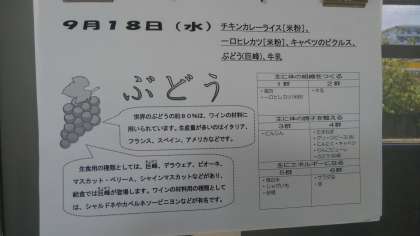 9月18日（水）
チキンカレーライス[米粉]、
一口ヒレカツ[米粉]、キャベツのピクルス、
ぶどう(巨峰)、牛乳
ぶどう
世界のぶどうの約80％は、ワインの材料に
用いられています。生産量が多いのはイタリア、
フランス、スペイン、アメリカなどです。
生食用の種類としては、巨峰、デラウェア、ピオーネ、
マスカット・ベリーA、シャインマスカットなどがあり、
給食では巨峰が登場します。ワインの材料用の種類として
は、シャルドネやカベルネソービニヨンなどが有名です。
主に体の組織をつくる
1群 2群
・鶏肉 ・牛乳
・一口ヒレカツ(米粉)
主に体の調子を整える
3群 4群
・にんじん ・たまねぎ
・にんにく ・キャベツ
主にエネルギーになる
5群 6群
・じゃがいも
・砂糖